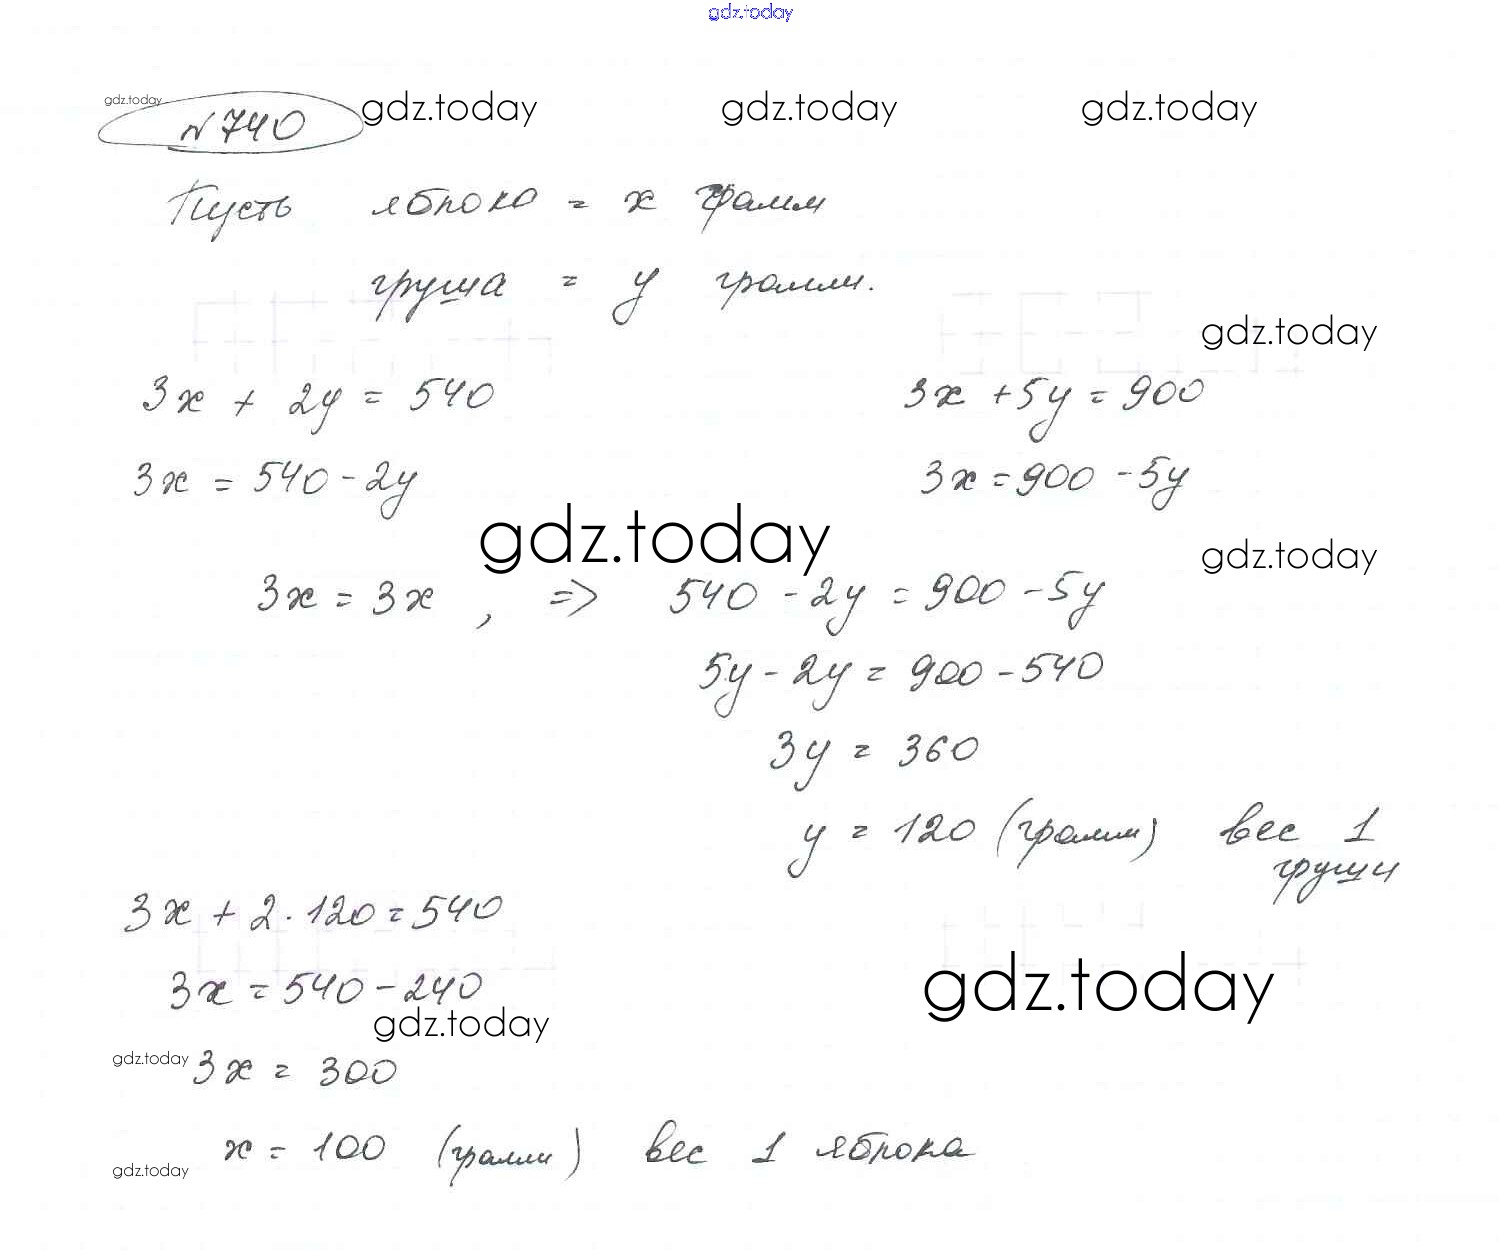 gdz.today
gdz.today gdz.today gdz.today gdz.today
№ 740
Пусть яблоко = x грамм
груша = y грамм.
gdz.today
3x + 2y = 540 3x + 5y = 900
3x = 540 - 2y 3x = 900 - 5y
gdz.today gdz.today
3x = 3x , => 540 - 2y = 900 - 5y
5y - 2y = 900 - 540
3y = 360
y = 120 (грамм) вес 1
груши
3x + 2 · 120 = 540
gdz.today
3x = 540 - 240
gdz.today
gdz.today
3x = 300
x = 100 (грамм) вес 1 яблока
gdz.today